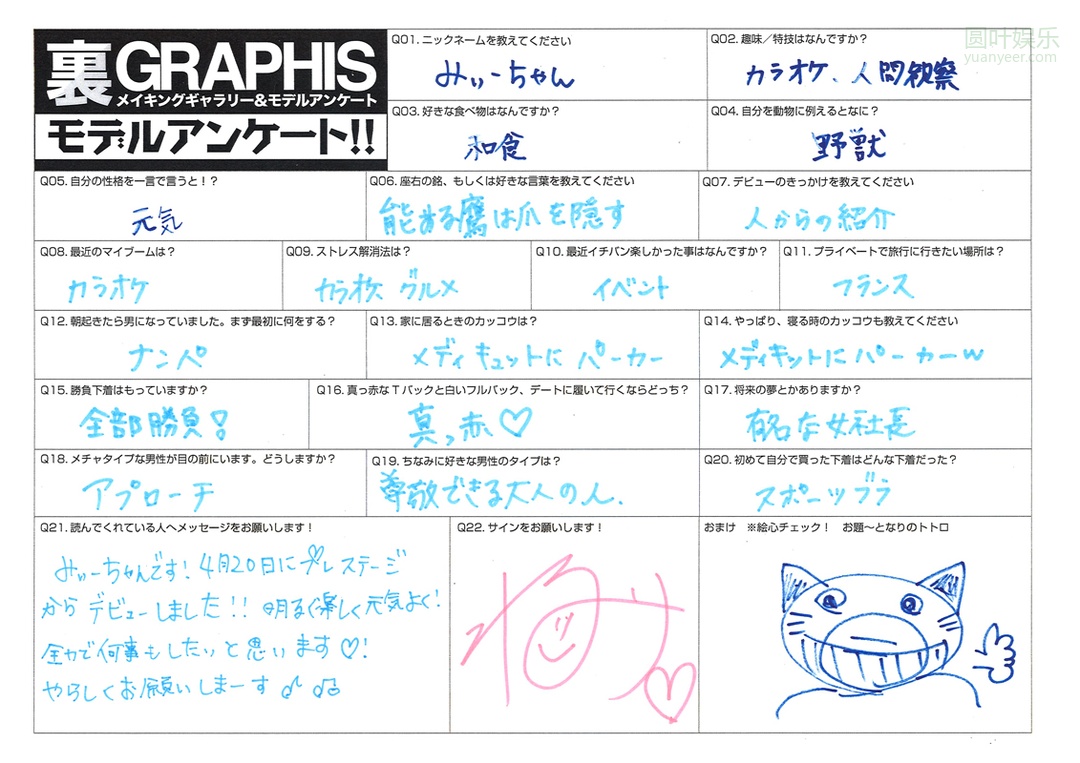 圆叶娱乐
yuanyeer.com
裏GRAPHIS
メイキングギャラリー&モデルアンケート
モデルアンケート!!
Q01. ニックネームを教えてください
みぃーちゃん
Q02. 趣味／特技はなんですか？
カラオケ、人間観察
Q03. 好きな食べ物はなんですか？
和食
Q04. 自分を動物に例えるとなに？
野獣
Q05. 自分の性格を一言で言うと！？
元気
Q06. 座右の銘、もしくは好きな言葉を教えてください
能ある鷹は爪を隠す
Q07. デビューのきっかけを教えてください
人からの紹介
Q08. 最近のマイブームは？
カラオケ
Q09. ストレス解消法は？
カラオケ グルメ
Q10. 最近イチバン楽しかった事はなんですか？
イベント
Q11. プライベートで旅行に行きたい場所は？
フランス
Q12. 朝起きたら男になっていました。まず最初に何をする？
ナンパ
Q13. 家に居るときのカッコウは？
メディキュットにパーカー
Q14. やっぱり、寝る時のカッコウも教えてください
メディキットにパーカーw
Q15. 勝負下着はもっていますか？
全部勝負!
Q16. 真っ赤なTバックと白いフルバック、デートに履いて行くならどっち？
真っ赤♡
Q17. 将来の夢とかありますか？
有名な女社長
Q18. メチャタイプな男性が目の前にいます。どうしますか？
アプローチ
Q19. ちなみに好きな男性のタイプは？
尊敬できる大人の人.
Q20. 初めて自分で買った下着はどんな下着だった？
スポーツブラ
Q21. 読んでくれている人へメッセージをお願いします！
みぃーちゃんです! 4月20日にプレステージ
からデビューしました!! 明るく楽しく元気よく!
全力で何事もしたいと思います♡!
やらしくお願いしまーす♪♫
Q22. サインをお願いします！
おまけ　※絵心チェック！　お題〜となりのトトロ